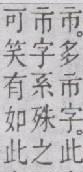 市。多市字。此
市字系殊之
可笑有如此